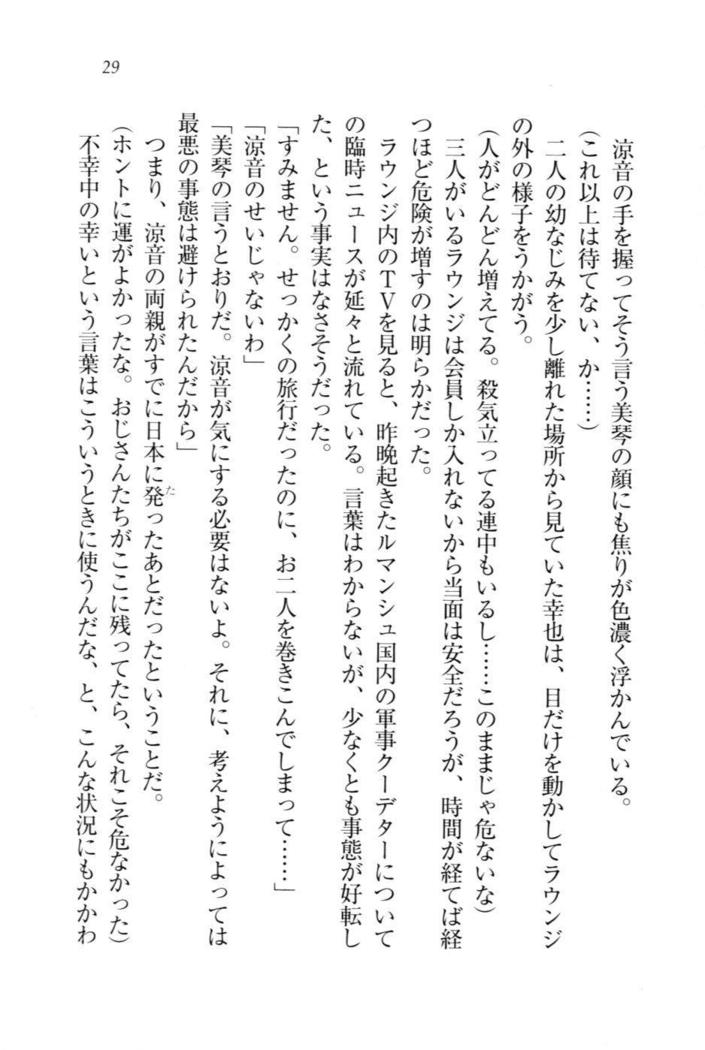 29
涼音の手を握ってそう言う美琴の顔にも焦りが色濃く浮かんでいる。
(これ以上は待てない、か……)
二人の幼なじみを少し離れた場所から見ていた幸也は、目だけを動かしてラウンジ
の外の様子をうかがう。
(人がどんどん増えてる。殺気立ってる連中もいるし……このままじゃ危ないな)
三人がいるラウンジは会員しか入れないから当面は安全だろうが、時間が経てば経
つほど危険が増すのは明らかだった。
ラウンジ内のTVを見ると、昨晩起きたルマンシュ国内の軍事クーデターについて
の臨時ニュースが延々と流れている。言葉はわからないが、少なくとも事態が好転し
た、という事実はなさそうだった。
「すみません。せっかくの旅行だったのに、お二人を巻きこんでしまって……」
「涼音のせいじゃないわ」
「美琴の言うとおりだ。涼音が気にする必要はないよ。それに、考えようによっては
最悪の事態は避けられたんだから」
つまり、涼音の両親がすでに日本に発ったあとだったということだ。
(ホントに運がよかったな。おじさんたちがここに残ってたら、それこそ危なかった)
不幸中の幸いという言葉はこういうときに使うんだな、と、こんな状況にもかかわ